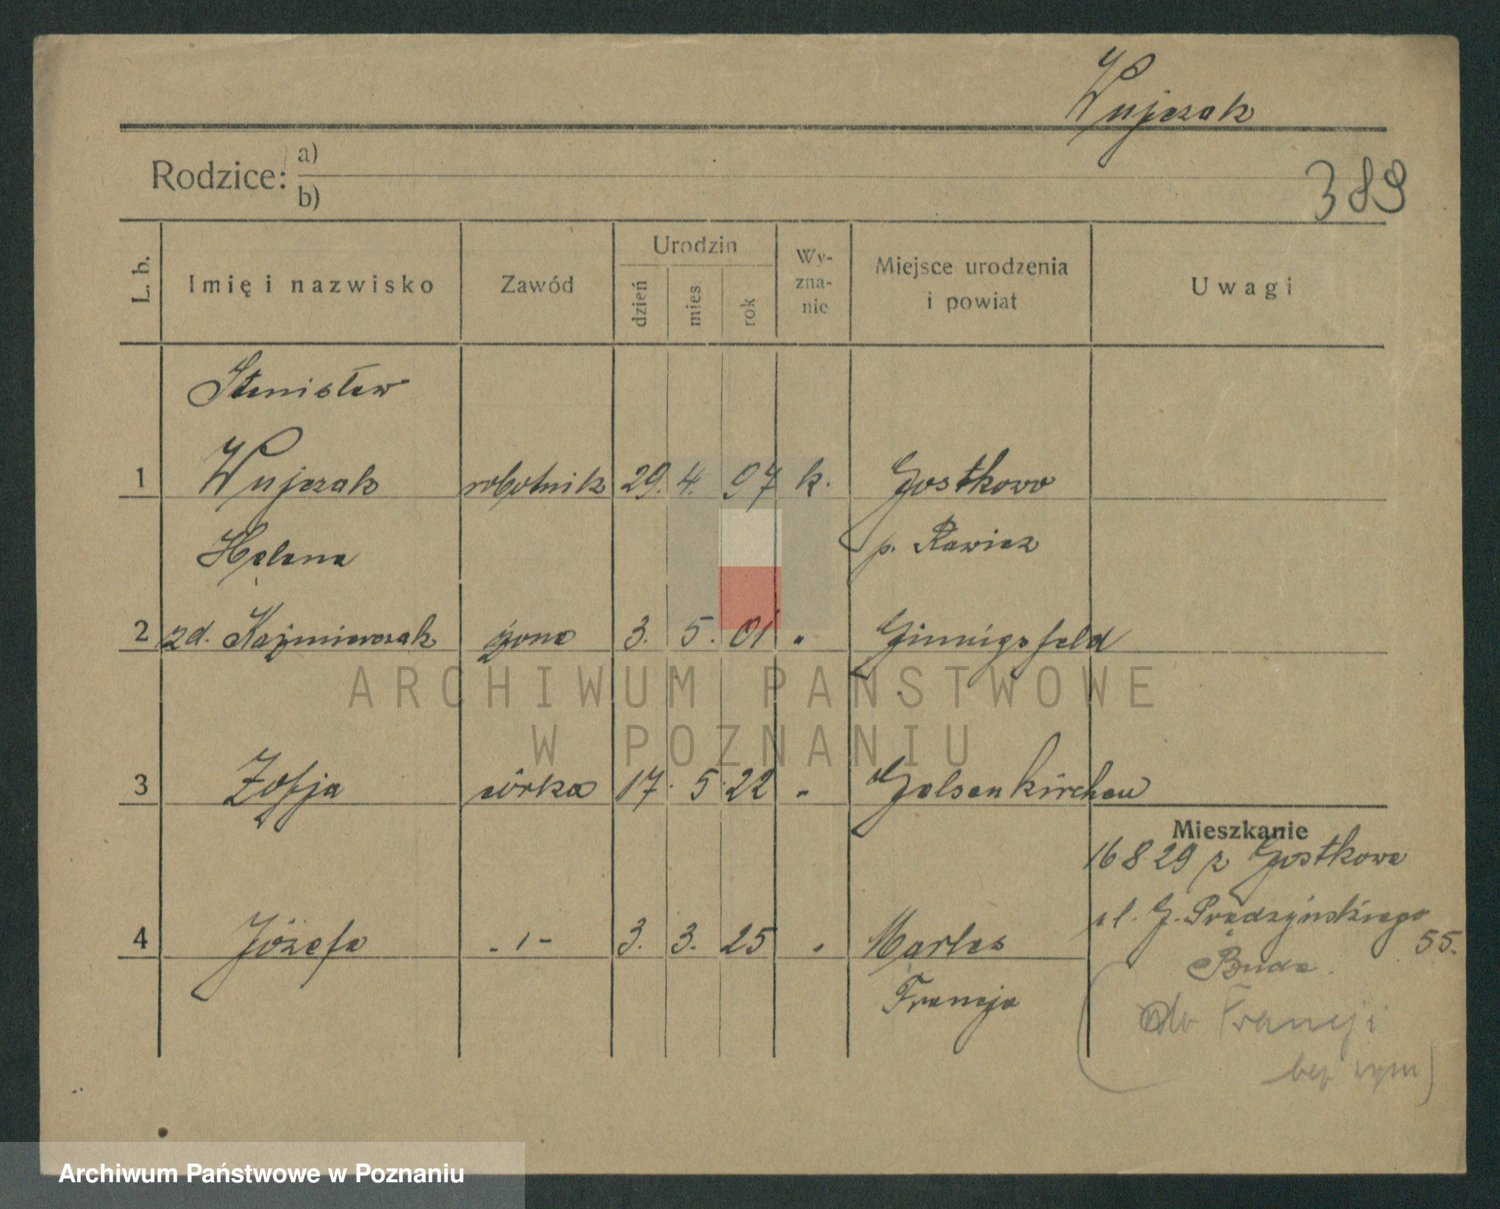 Wujczak
389
Rodzice: a)
b)
L. b. Imię i nazwisko Zawód Urodzin dzień mies. rok Wy-zna-nie Miejsce urodzenia i powiat Uwagi
Stanisław
1 Wujczak robotnik 29. 4. 97 k. Gostkowo
Helena p. Rawicz
2 zd. Kaźmierczak żona 3. 5. 01 „
ARCHIWUM PAŃSTWOWE
W POZNANIU
3 Zofja córka 17. 5. 22 „ Gelsenkirchen
Mieszkanie
16 8 29 z Gostkowa
ul. G. Prądzyńskiego
4 Józefa -„- 3. 3. 25 „ Marles 55.
Buda.
Francja
do Francji
bez wym)
Archiwum Państwowe w Poznaniu